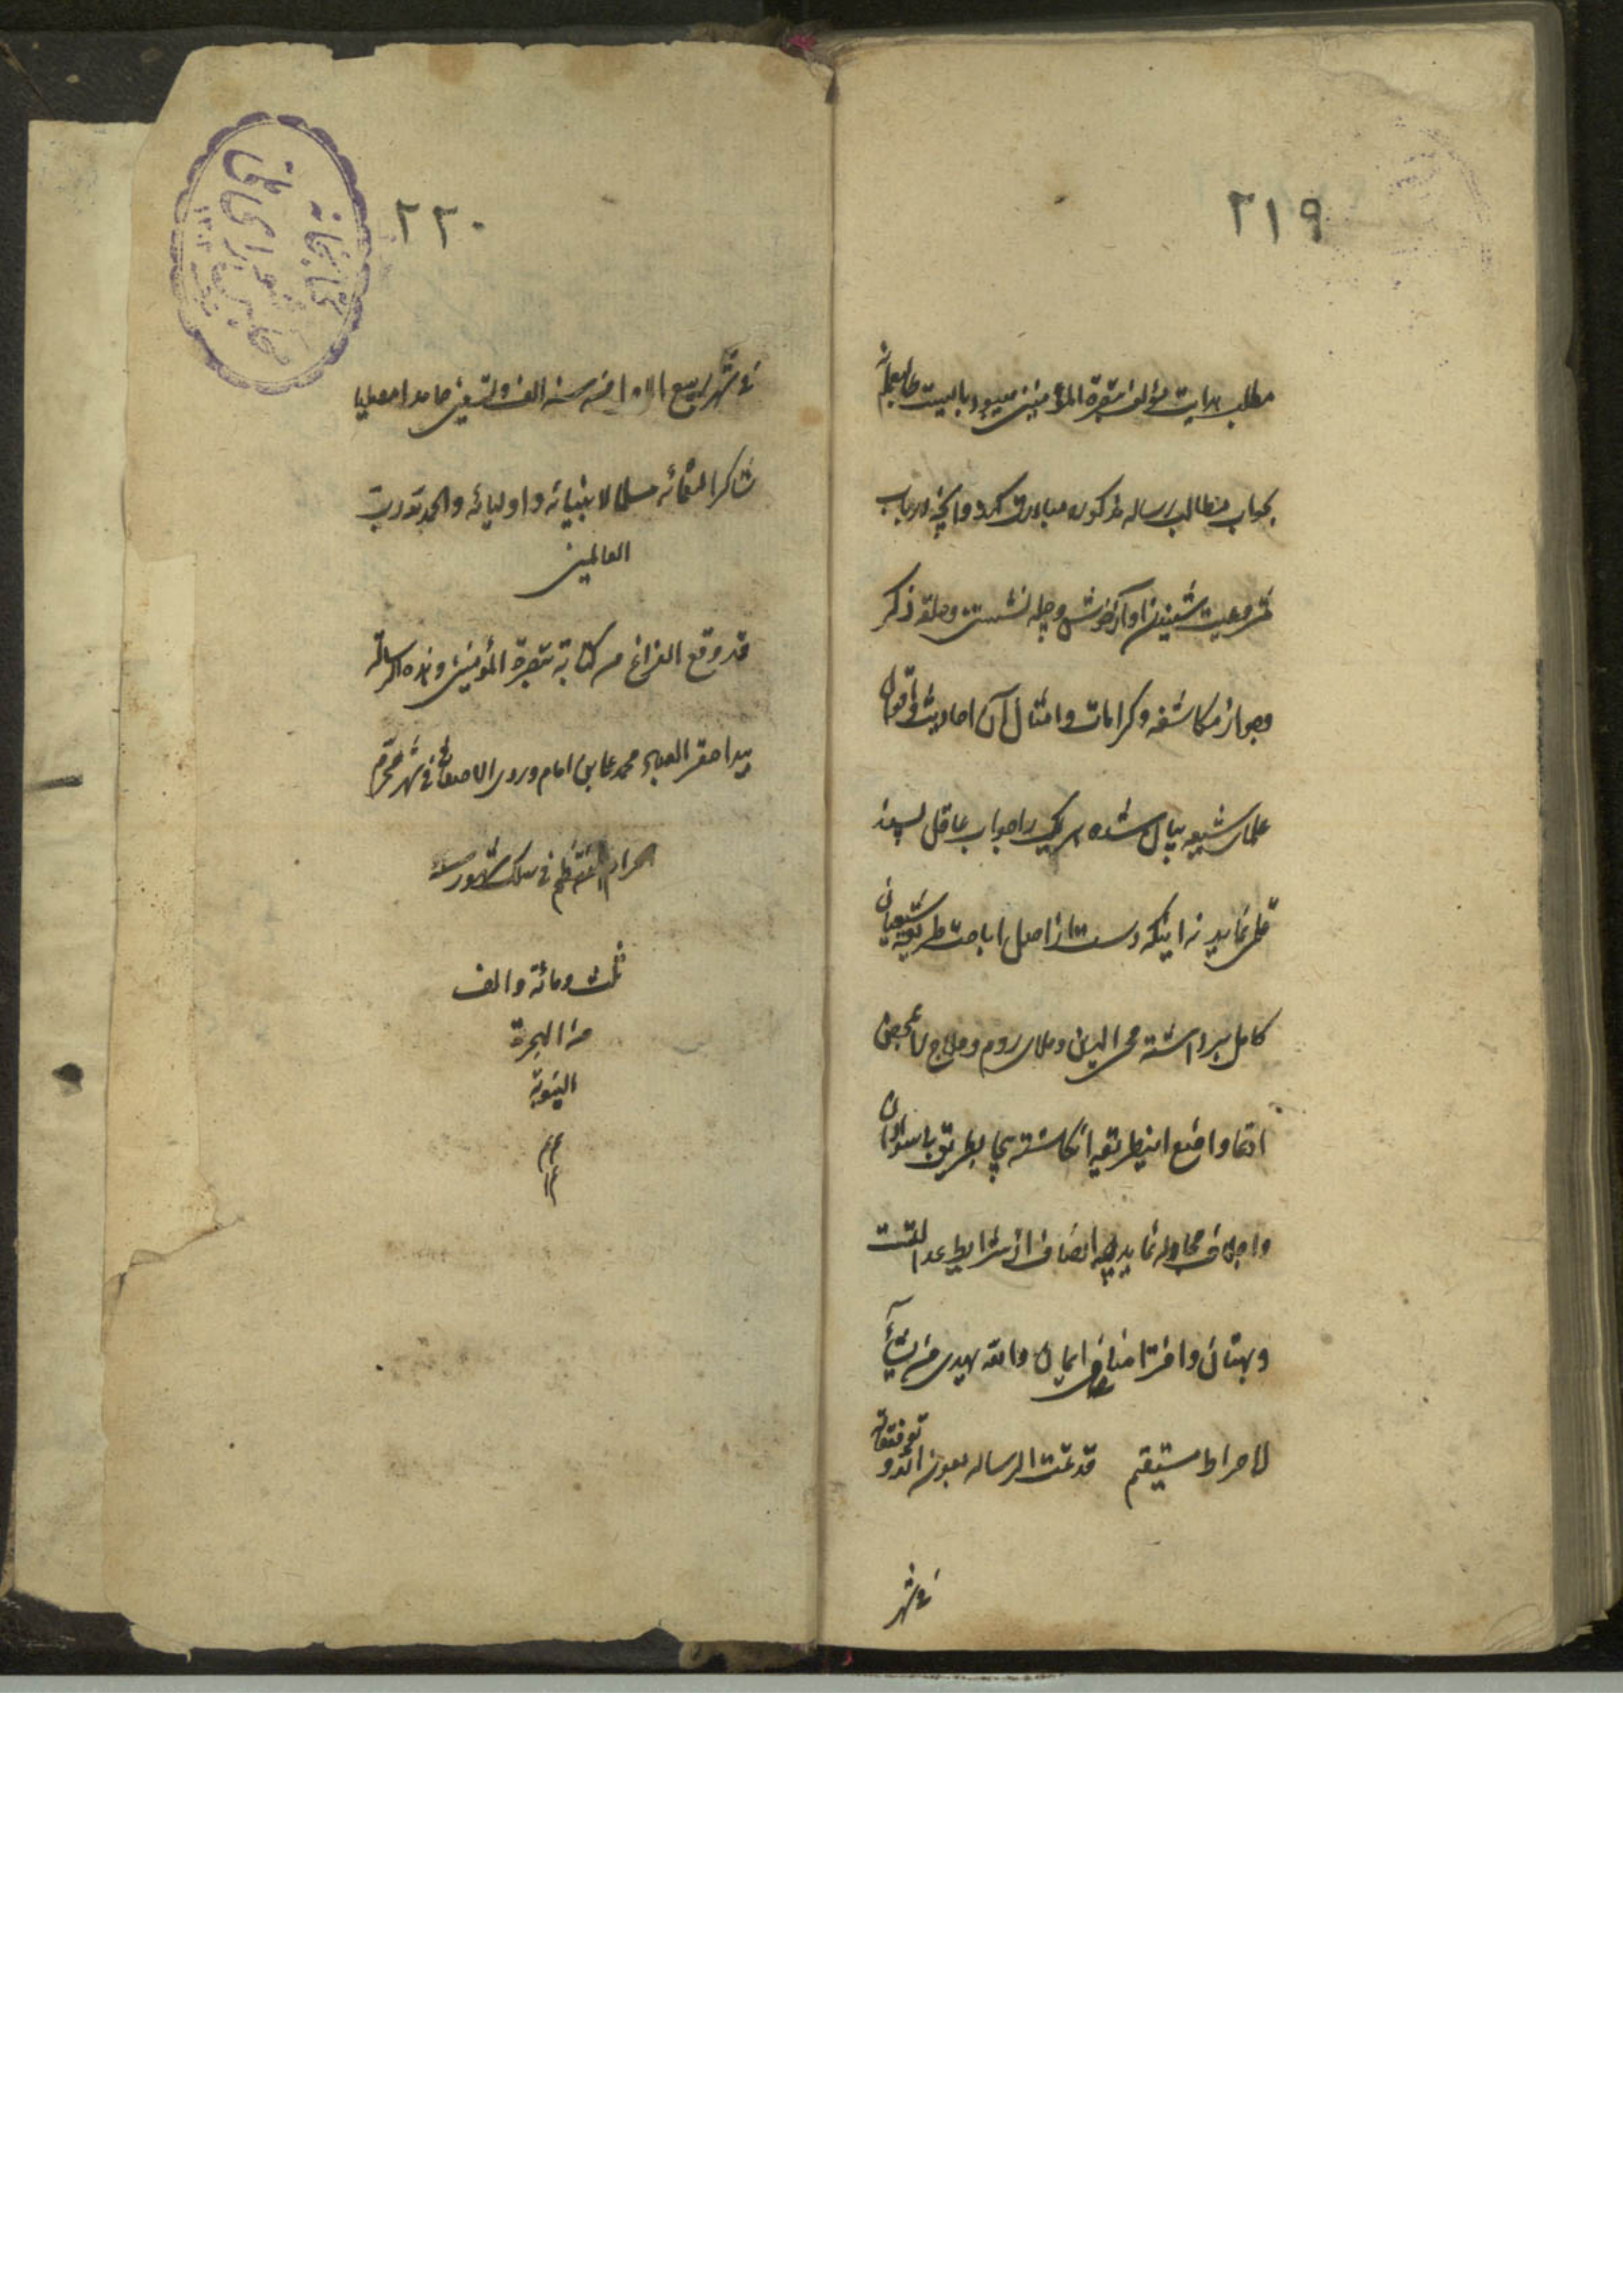 ۲۱۹
مطلب هدایت مؤلف تبصرة المؤمنین میبود بایست
بجواب مطالب رساله مذکوره مبادرت کرد و آنچه در باب
مشروعیت شنیدن آواز خوش و چله نشستن و حلقه ذکر
و جواز مکاشفه و کرامات و امثال آن احادیث و اقوال
علمای شیعه بیان شده هر یک را جواب عاقل پسند
قلمی نماید نه اینکه دست از اصل اباحت طریقه شیعیان
کامل برداشته محی الدین و ملای روم و حلاج را
ادعا واضع اینطریقه انکاشته بطریق
و اجلاف مجادله نماید چه انصاف از شرایط عدالتست
و بهتان و افترا منافی ایمان والله یهدی من یشآء
الی صراط مستقیم قد تمت الرساله بعون الله و توفیقاته
فی شهر
۲۲۰
فی شهر ربیع الاول من سنه الف و تسعین حامدا مصلیا
شاکرا لنعمائه مسلما لانبیائه و اولیائه والحمد لله رب
العالمین
قد وقع الفراغ من کتابة تبصرة المؤمنین و هذه الرسالة
بید احقر العباد محمد علی بن امام وردی الاصفهانی فی شهر محرم
الحرام المنتظم فی سلک شهور سنه
ثلث و مائة و الف
من الهجرة
النبویة
کتابخانه
مجلس شورای ملی